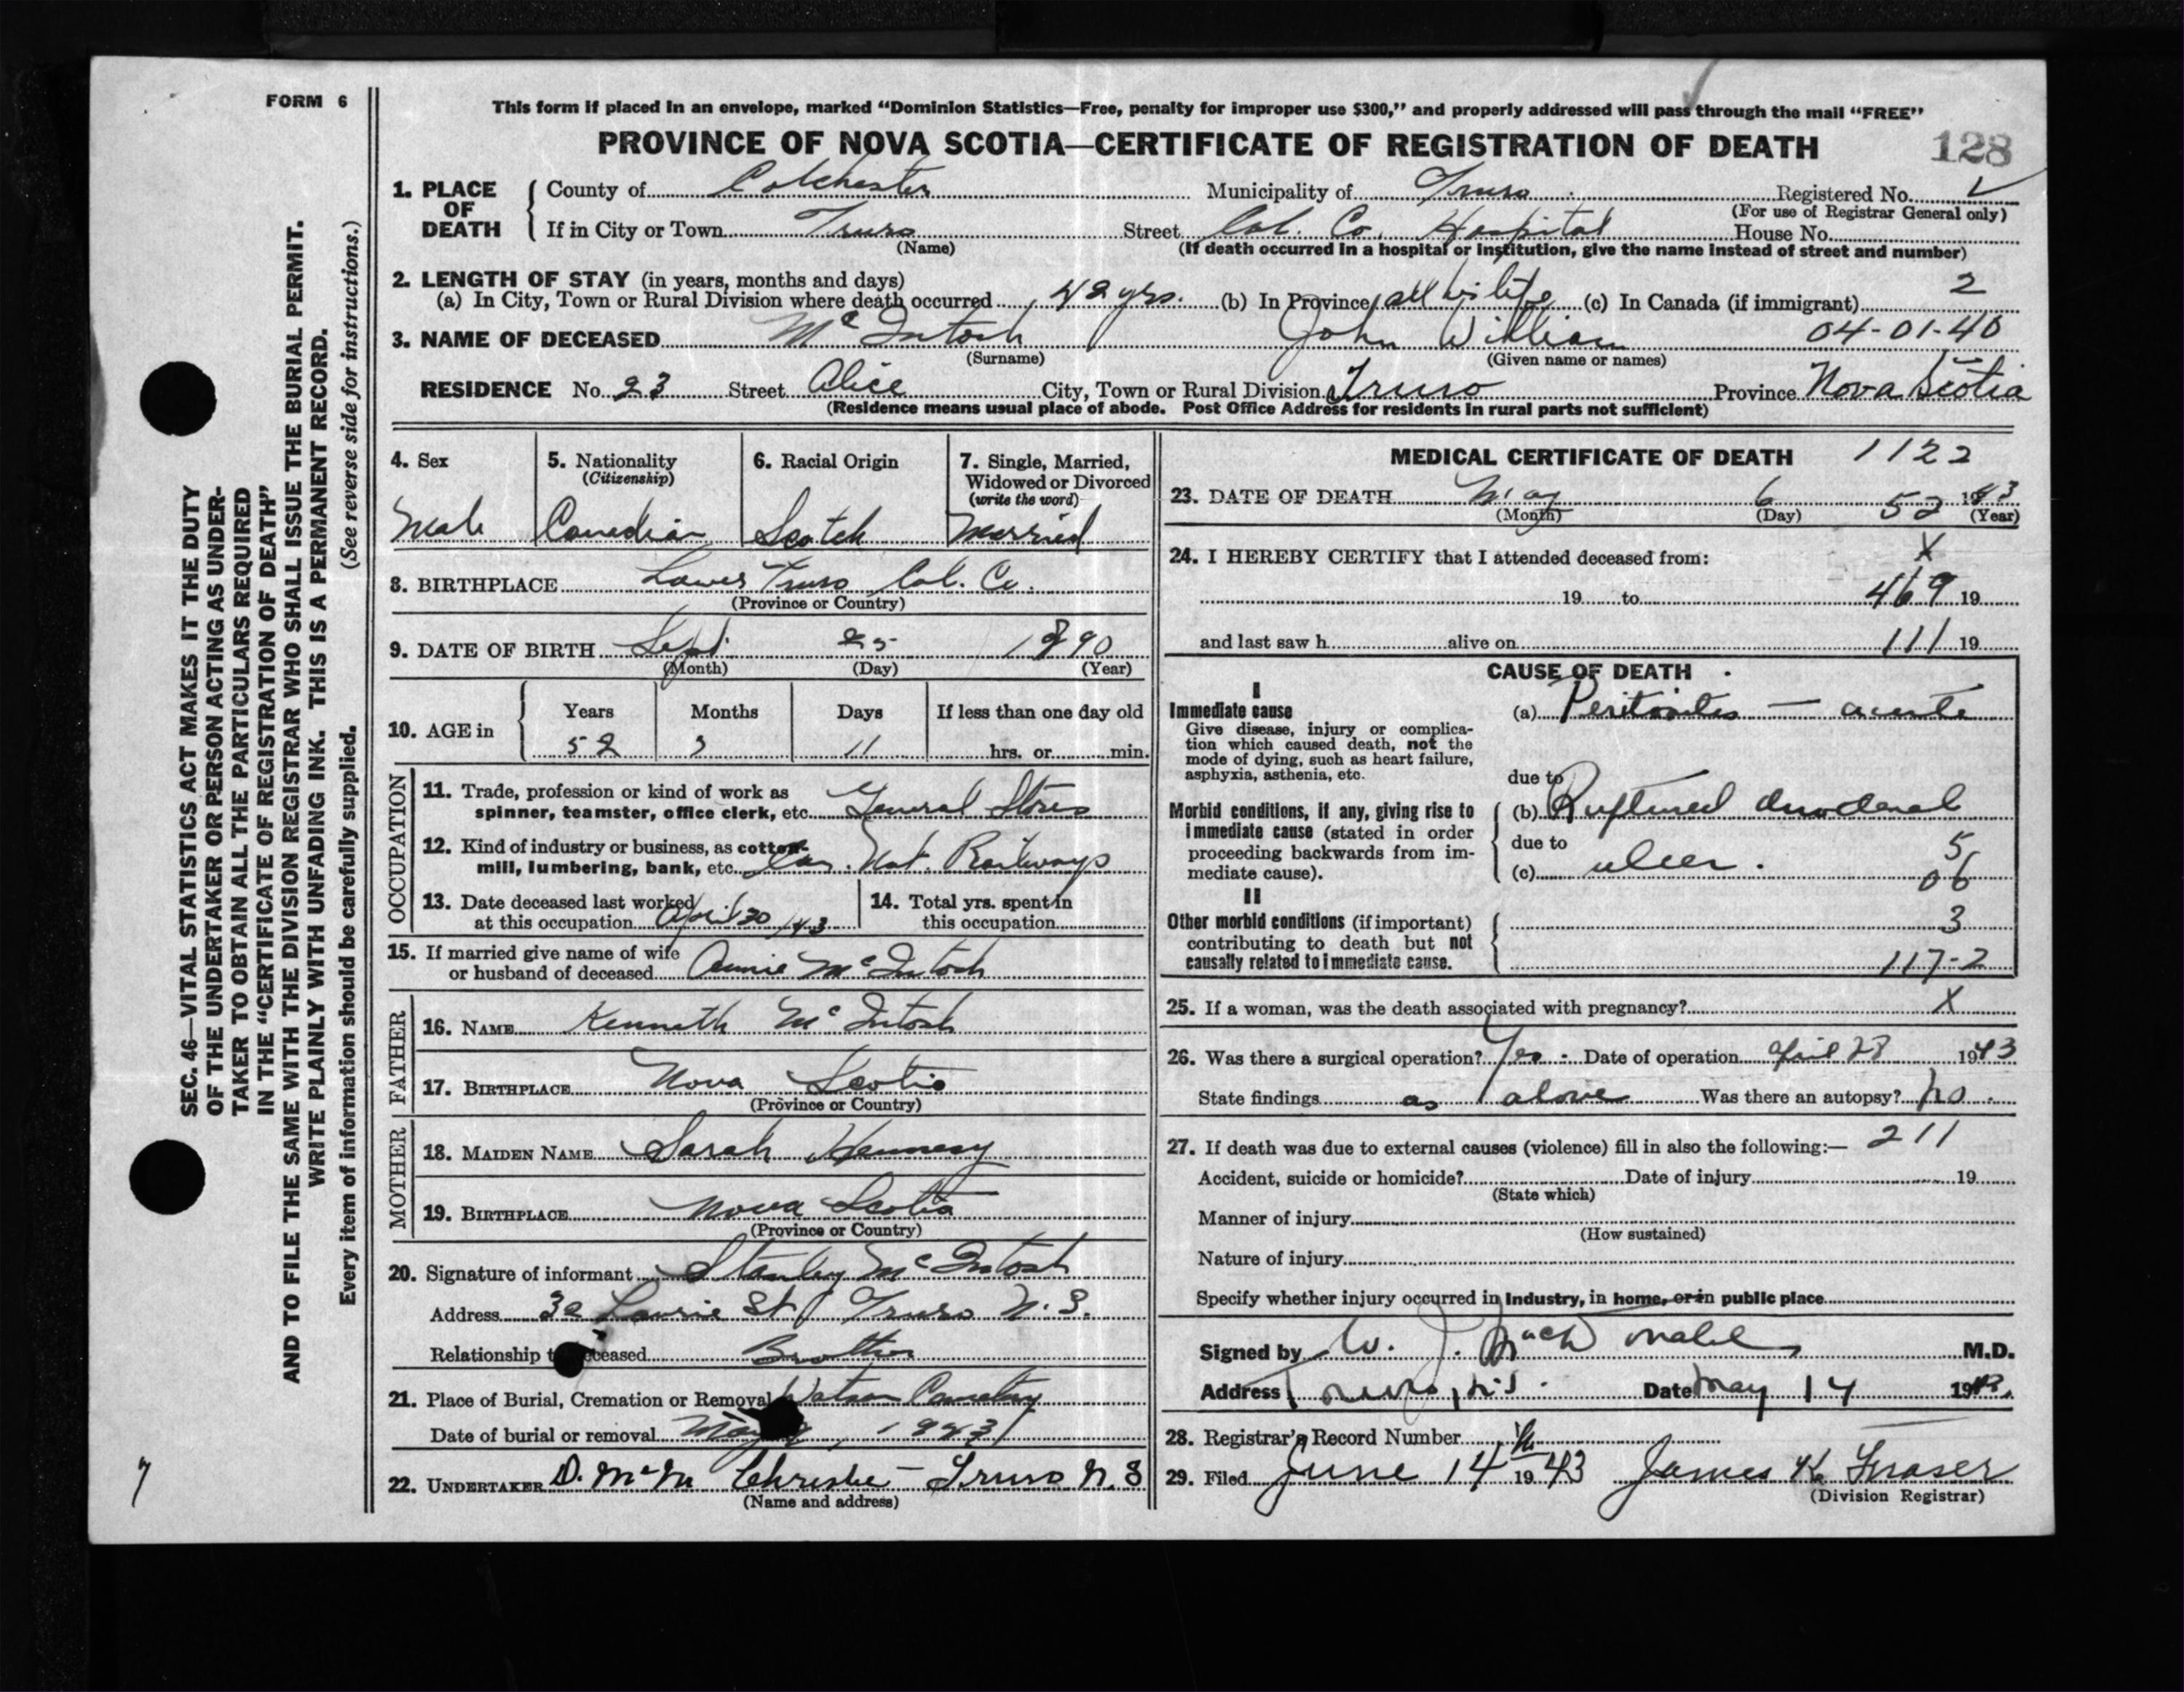 FORM 6
This form if placed in an envelope, marked “Dominion Statistics—Free, penalty for improper use $300,” and properly addressed will pass through the mail “FREE”
PROVINCE OF NOVA SCOTIA—CERTIFICATE OF REGISTRATION OF DEATH
128
1. PLACE OF DEATH
County of Colchester Municipality of Truro Registered No.
(For use of Registrar General only)
If in City or Town Truro Street Col. Co. Hospital House No.
(Name) (If death occurred in a hospital or institution, give the name instead of street and number)
2. LENGTH OF STAY (in years, months and days) 2
(a) In City, Town or Rural Division where death occurred 42 yrs. (b) In Province all his life (c) In Canada (if immigrant)
3. NAME OF DECEASED McIntosh John William 04-01-40
(Surname) (Given name or names)
RESIDENCE No. 23 Street Alice City, Town or Rural Division Truro Province Nova Scotia
(Residence means usual place of abode. Post Office Address for residents in rural parts not sufficient)
4. Sex
Male
5. Nationality
(Citizenship)
Canadian
6. Racial Origin
Scotch
7. Single, Married,
Widowed or Divorced
(write the word)
Married
8. BIRTHPLACE Lower Truro Col. Co.
(Province or Country)
9. DATE OF BIRTH Sept. 25 1890
(Month) (Day) (Year)
10. AGE in
Years Months Days If less than one day old
52 11 hrs. or min.
OCCUPATION
11. Trade, profession or kind of work as
spinner, teamster, office clerk, etc. General Stores
12. Kind of industry or business, as cotton-
mill, lumbering, bank, etc. Can. Nat. Railways
13. Date deceased last worked
at this occupation April 20 /43
14. Total yrs. spent in
this occupation
15. If married give name of wife
or husband of deceased Annie McIntosh
FATHER
16. NAME Kenneth McIntosh
17. BIRTHPLACE Nova Scotia
(Province or Country)
MOTHER
18. MAIDEN NAME Sarah Hennesy
19. BIRTHPLACE Nova Scotia
(Province or Country)
20. Signature of informant Stanley McIntosh
Address Laurie St Truro N.S.
Relationship to deceased Brother
21. Place of Burial, Cremation or Removal Watson Cemetery
Date of burial or removal May 1943
22. UNDERTAKER D. McM Christie – Truro N.S
(Name and address)
MEDICAL CERTIFICATE OF DEATH 1122
23. DATE OF DEATH May 6 52 1943
(Month) (Day) (Year)
24. I HEREBY CERTIFY that I attended deceased from: X
19 to 469 19
and last saw h alive on 111 19
CAUSE OF DEATH
I
Immediate cause
Give disease, injury or complica-
tion which caused death, not the
mode of dying, such as heart failure,
asphyxia, asthenia, etc.
(a) Peritonitis — acute
due to
Morbid conditions, if any, giving rise to
immediate cause (stated in order
proceeding backwards from im-
mediate cause).
(b) Ruptured duodenal
due to
(c) ulcer.
5
06
II
Other morbid conditions (if important)
contributing to death but not
causally related to immediate cause.
3
117-2
25. If a woman, was the death associated with pregnancy? X
26. Was there a surgical operation? Yes - Date of operation April 28 1943
State findings as above Was there an autopsy? No.
27. If death was due to external causes (violence) fill in also the following:— 211
Accident, suicide or homicide? Date of injury 19
(State which)
Manner of injury
(How sustained)
Nature of injury
Specify whether injury occurred in Industry, in home, or in public place
Signed by W. J. M.D.
Address Truro, N.S. Date May 14 1943.
28. Registrar's Record Number
29. Filed June 14 1943 James K Fraser
(Division Registrar)
SEC. 46—VITAL STATISTICS ACT MAKES IT THE DUTY
OF THE UNDERTAKER OR PERSON ACTING AS UNDER-
TAKER TO OBTAIN ALL THE PARTICULARS REQUIRED
IN THE “CERTIFICATE OF REGISTRATION OF DEATH”
AND TO FILE THE SAME WITH THE DIVISION REGISTRAR WHO SHALL ISSUE THE BURIAL PERMIT.
WRITE PLAINLY WITH UNFADING INK. THIS IS A PERMANENT RECORD.
Every item of information should be carefully supplied. (See reverse side for instructions.)
7